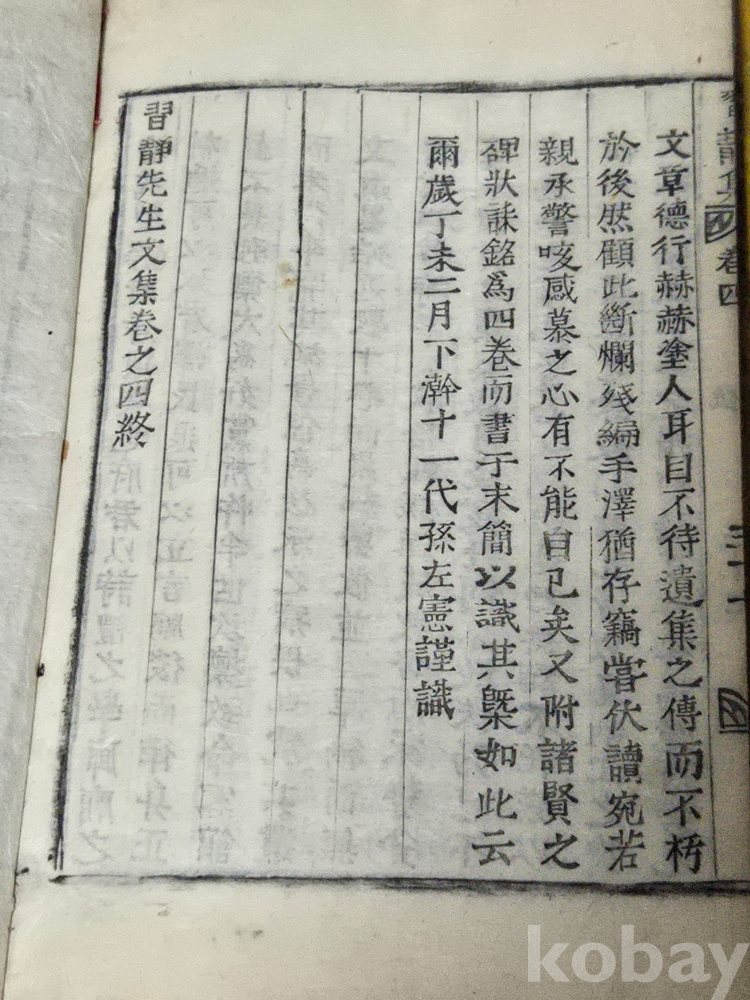 習靜集 卷四
文章德行赫赫塗人耳目不待遺集之傳而不朽
於後然顧此斷爛殘編手澤猶存竊嘗伏讀宛若
親承警咳感慕之心有不能自已矣又附諸賢之
碑狀誄銘爲四卷而書于末簡以識其槩如此云
爾歲丁未二月下澣十一代孫左憲謹識
習靜先生文集卷之四終
kobay